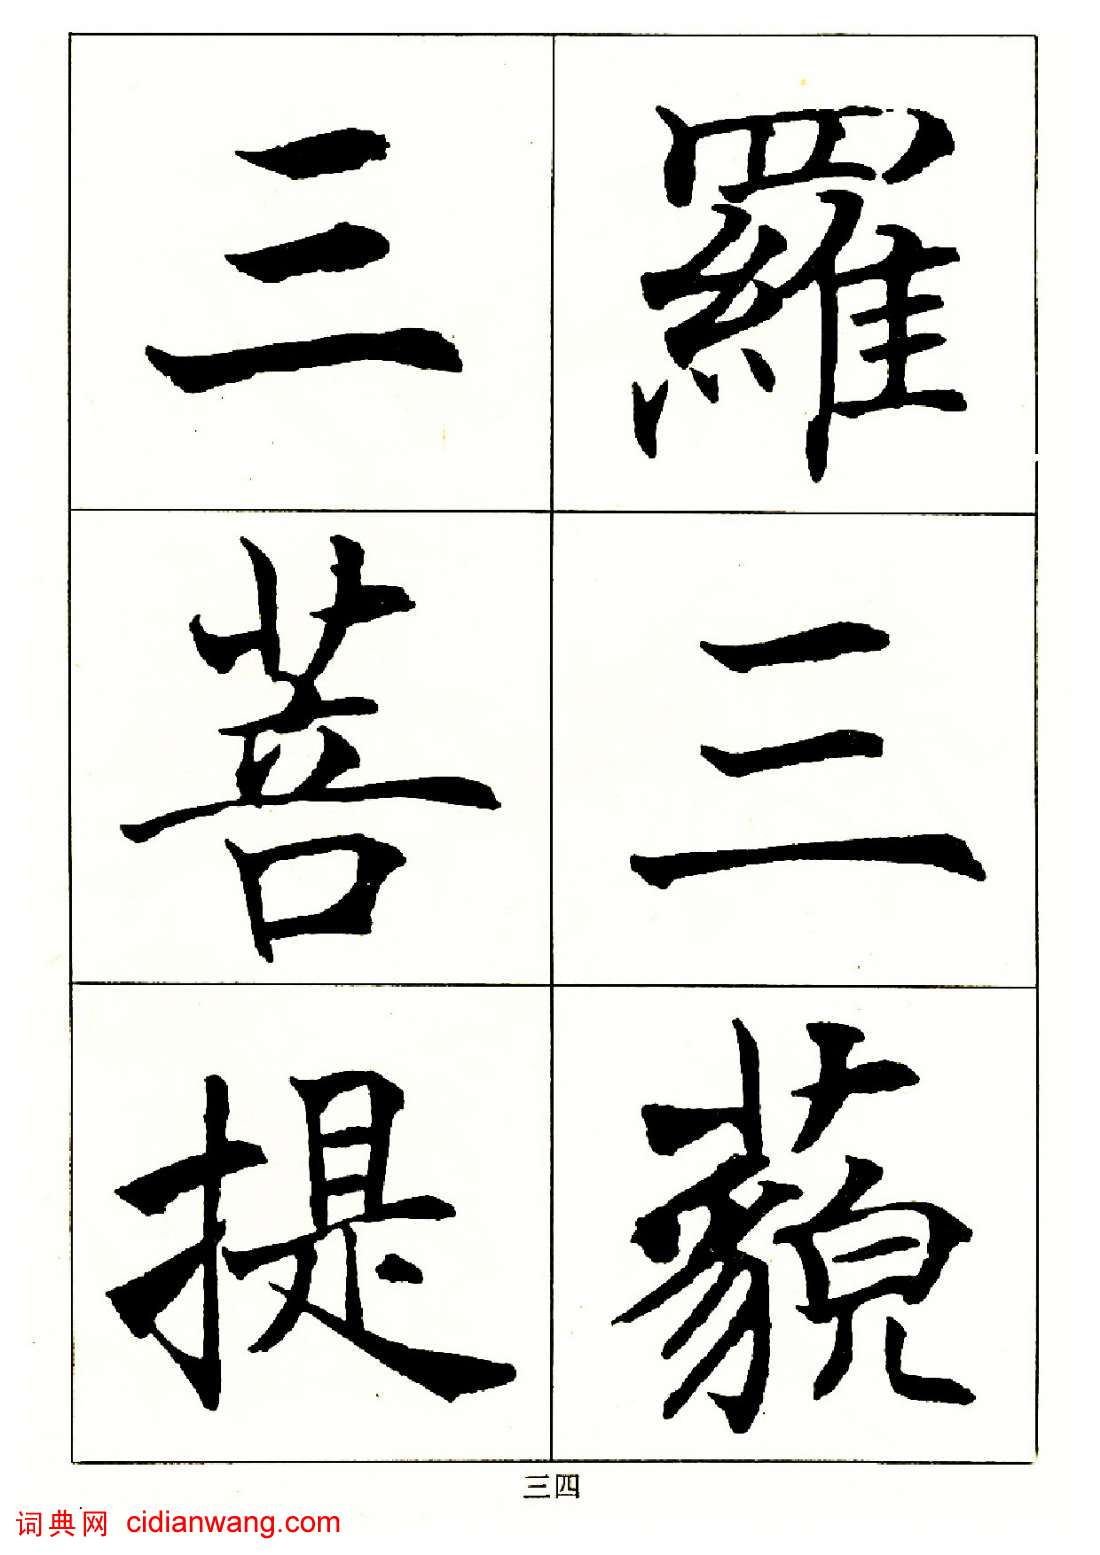 羅三藐
三菩提
三四
词典网 cidianwang.com